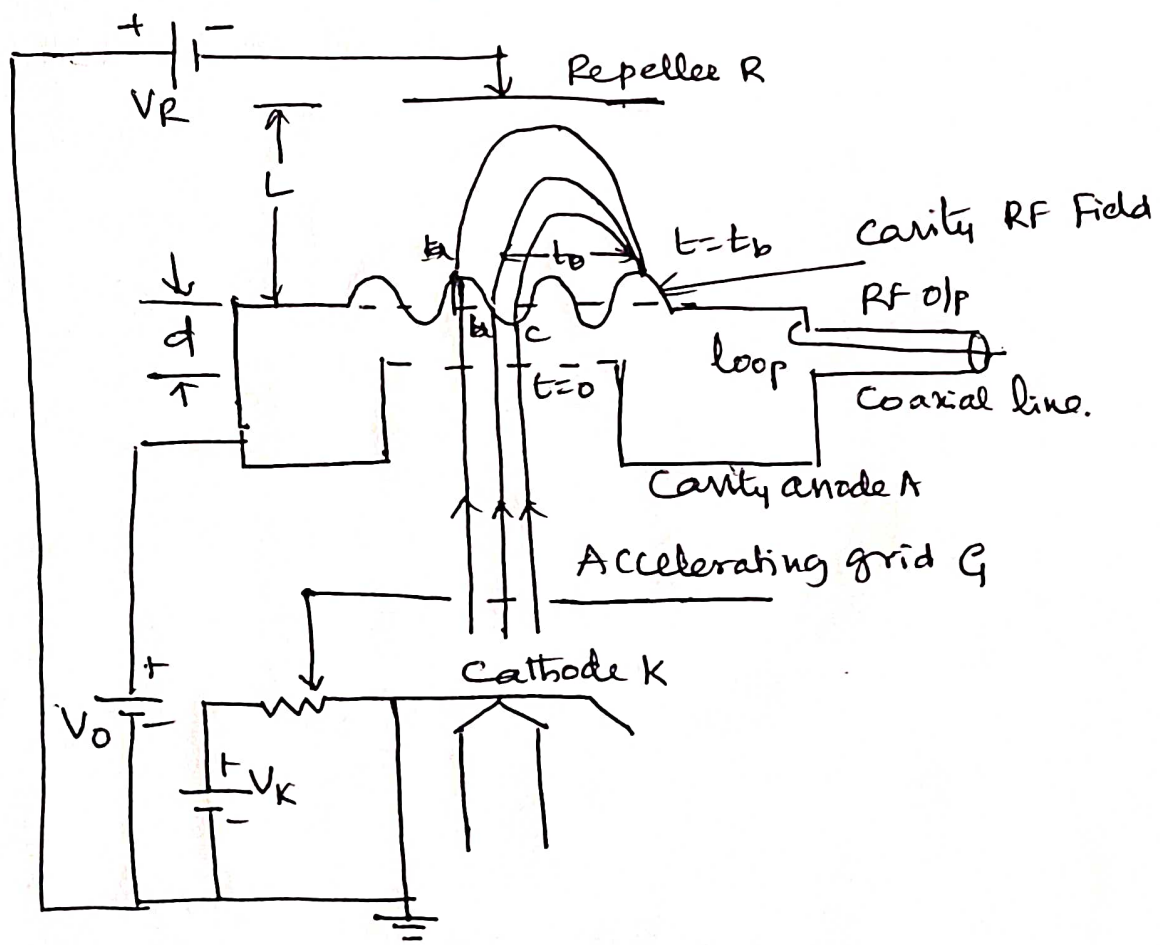 + −
VR
Repeller R
L
t=tb
Cavity RF Field
to
RF O/p
d
C
loop
t=0
Coaxial line.
Cavity anode A
Accelerating grid G
Cathode K
+
V0
−
+
VK
−